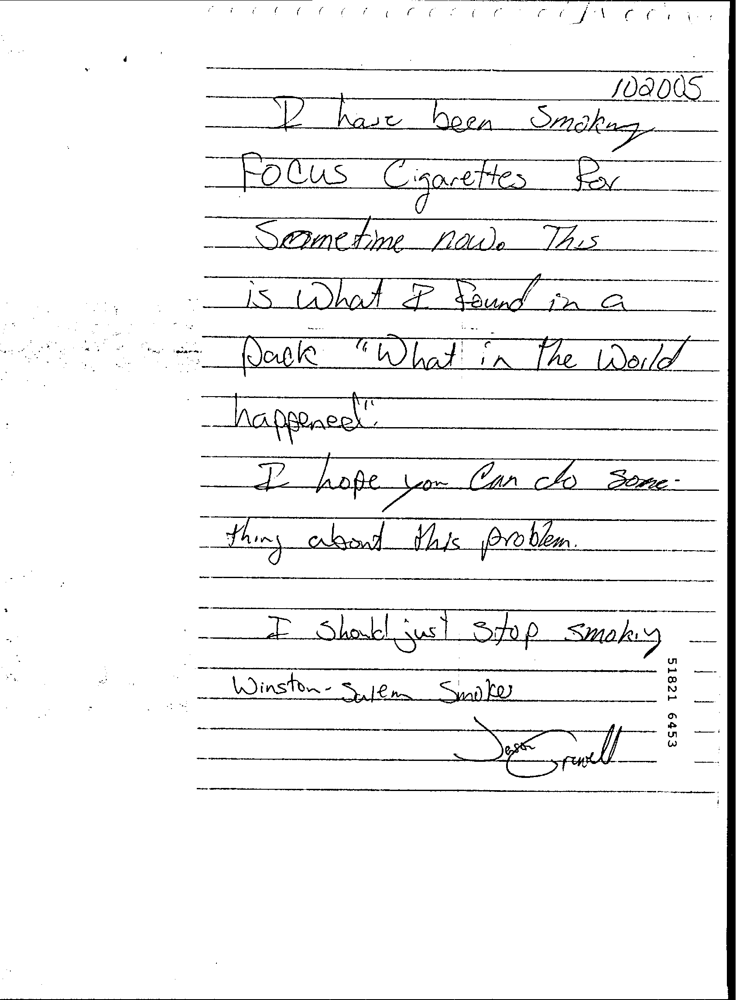 102005
I have been Smoking
FOCUS Cigarettes for
Sometime now. This
is what I found in a
pack "What in the World
happened".
I hope you Can do some-
thing about this problem.
I should just stop smoking
Winston-Salem Smoker
Jason
51821 6453